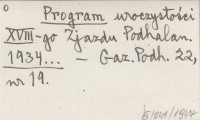 o
Program uroczystości
XVIII-go Zjazdu Podhalan.
1934... — Gaz. Podh. 22,
nr 19.